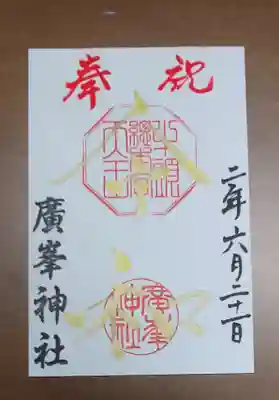 奉祝
二年六月二十一日
廣峯神社
廣峯
神社